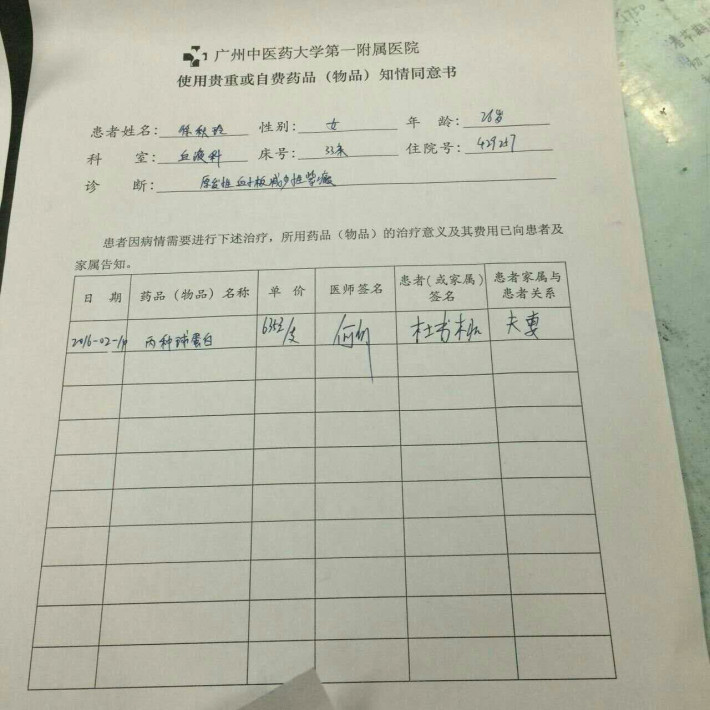 广州中医药大学第一附属医院
使用贵重或自费药品（物品）知情同意书
患者姓名： 秋玲 性别： 女 年 龄： 26岁
科 室： 血液科 床号： 33床 住院号：
诊 断： 原发性血小板减少性紫癜
患者因病情需要进行下述治疗，所用药品（物品）的治疗意义及其费用已向患者及
家属告知。
日 期 药品（物品）名称 单 价 医师签名 患者（或家属）签名 患者家属与患者关系
2016-02- 丙种球蛋白 /支 夫妻